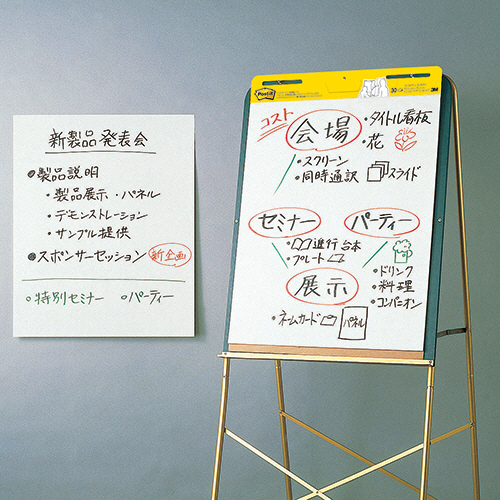 新製品発表会
●製品説明
・製品展示・パネル
・デモンストレーション
・サンプル提供
●スポンサーセッション 新企画
○特別セミナー ○パーティー
Post-it
30
3M
コスト
会場
・タイトル看板
・花
・スクリーン
・同時通訳 スライド
セミナー
パーティー
・進行台本
・プレート
展示
・ドリンク
・料理
・コンパニオン
・ネームカード
パネル